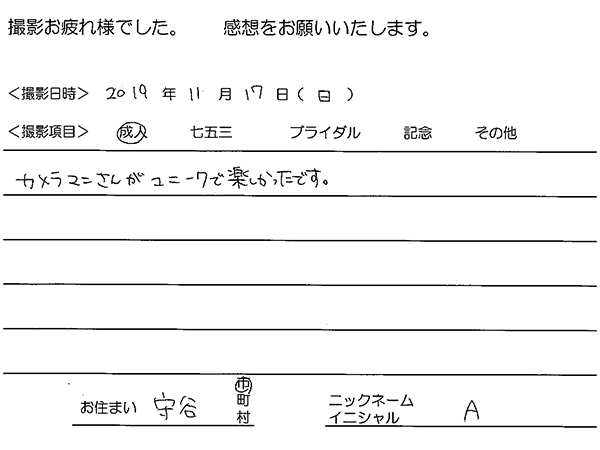 撮影お疲れ様でした。 感想をお願いいたします。
<撮影日時> 2019 年 11 月 17 日 ( 日 )
<撮影項目> 成人 七五三 ブライダル 記念 その他
カメラマンさんがユニークで楽しかったです。
お住まい 守谷 市 町 村
ニックネーム イニシャル A